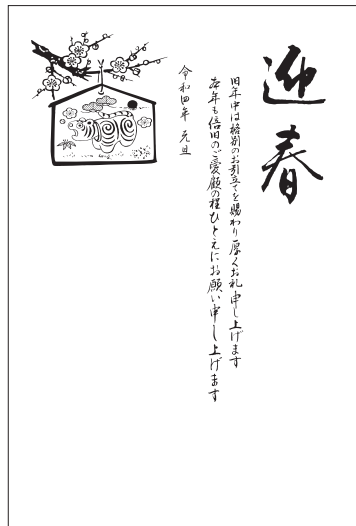 迎春
旧年中は格別のお引立てを賜わり厚くお礼申し上げます
本年も倍旧のご愛顧の程ひとえにお願い申し上げます
令和四年 元旦